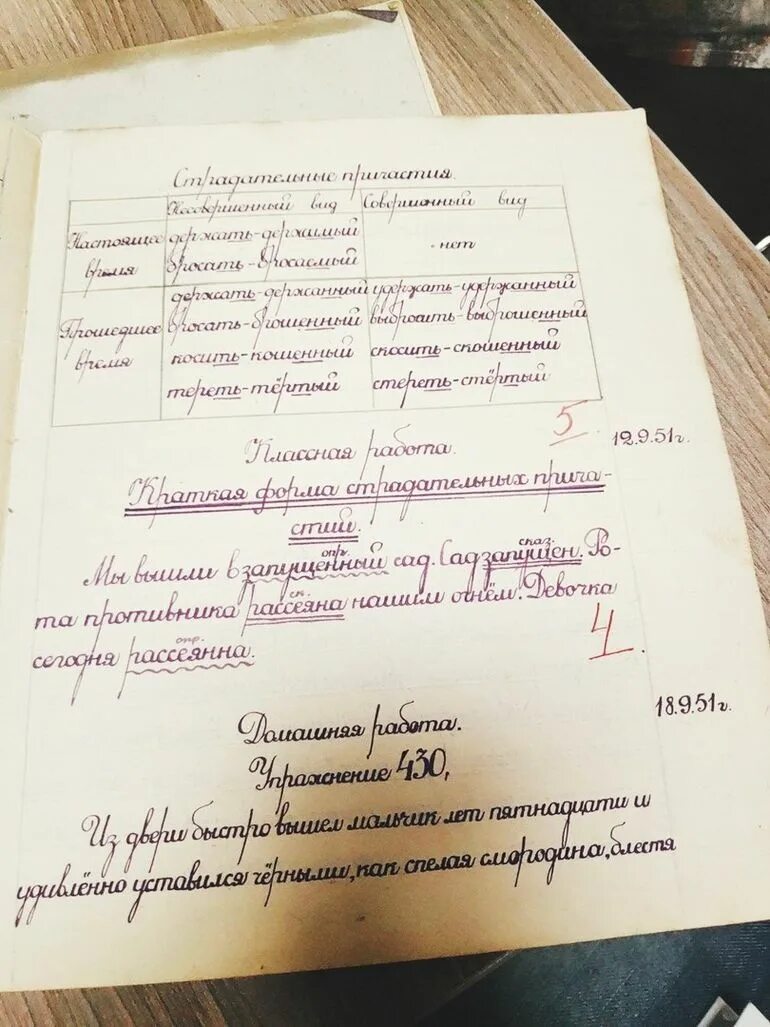 Страдательные причастия.
Несовершенный вид Совершенный вид
Настоящее время держать-держимый нет
бросать-бросаемый
Прошедшее время держать-держанный удержать-удержанный
бросать-брошенный выбросить-выброшенный
косить-кошенный скосить-скошенный
тереть-тёртый стереть-стёртый
5
12.9.51г.
Классная работа.
Краткая форма страдательных прича-
стий.
опр. сказ.
Мы вышли в запущенный сад. Сад запущен. Ро-
ск.
та противника рассеяна нашим огнём. Девочка
опр.
сегодня рассеянна.
4
18.9.51г.
Домашняя работа.
Упражнение 430,
Из двери быстро вышел мальчик лет пятнадцати и
удивлённо уставился чёрными, как спелая смородина, блестя